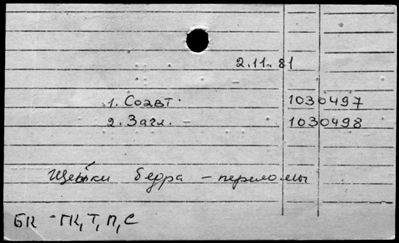 2.11.81
1. Соавт. 1030497
2. Загл. - 1030498
Шейки бедра - переломы
БК - ГК, Т, П, С